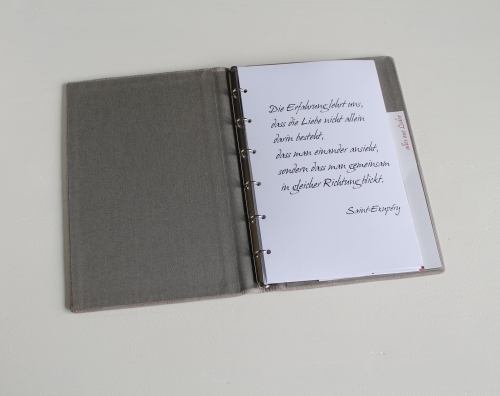 Die Erfahrung lehrt uns,
dass die Liebe nicht allein
darin besteht,
dass man einander ansieht,
sondern dass man gemeinsam
in gleicher Richtung blickt.
Saint-Exupéry